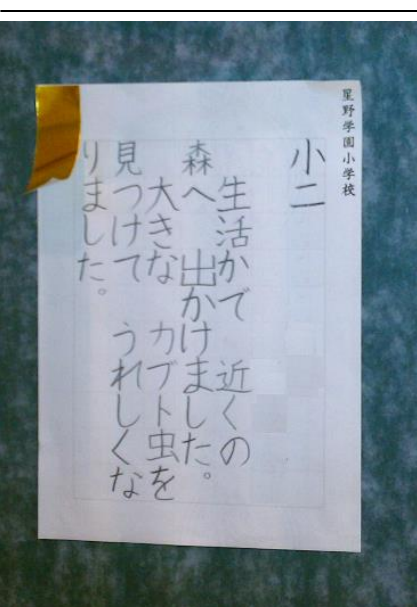 星野学園小学校
小二
生活かで　近くの
森へ　出かけました。
大きな　カブト虫を
見つけて　うれしくな
りました。